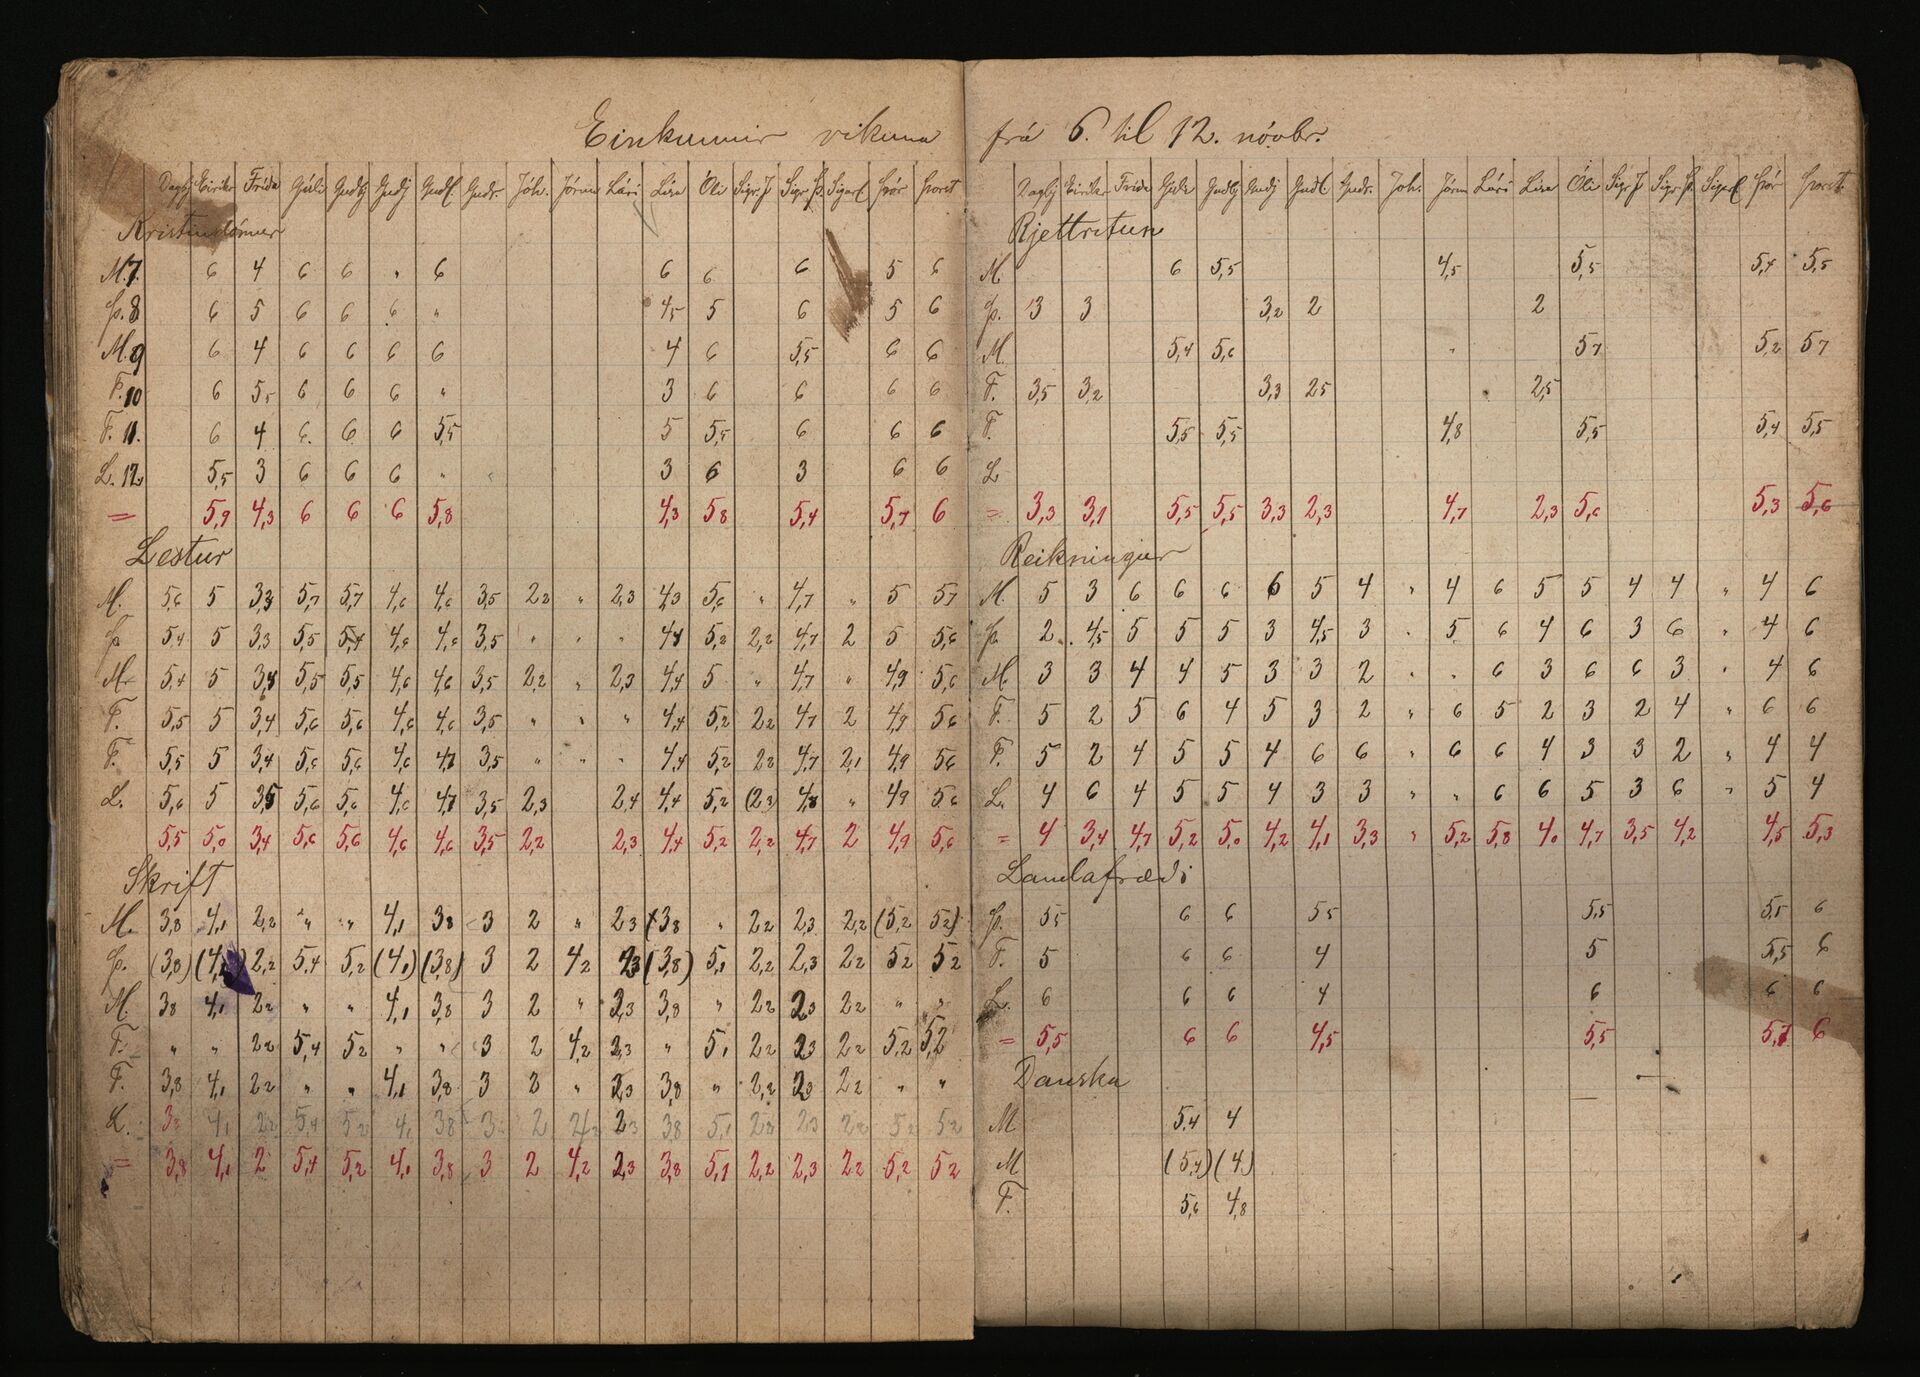 Einkunnir vikuna frá 6. til 12. nóvbr.
Dagbj Eirikr Fríða Gúli Guðbj Guðj Guðl Guðr. Jóh. Jórun Lári Lísa Óli Sigr. J Sigr. Þ. Sigurl Þór Þorst
Kristindómur
M. 7. 6 4 6 6 " 6 6 6 6 5 6
Þ. 8 6 5 6 6 6 " 4,5 5 6 5 6
M. 9 6 4 6 6 6 6 4 6 5,5 6 6
F. 10 6 5,5 6 6 6 " 3 6 6 6 6
F. 11. 6 4 6 6 6 5,5 5 5,5 6 6 6
L. 12. 5,5 3 6 6 6 " " 3 6 3 6 6
= 5,9 4,3 6 6 6 5,8 4,3 5,8 5,4 5,7 6
Lestur
M. 5,6 5 3,3 5,7 5,7 4,6 4,6 3,5 2,2 " 2,3 4,3 5,6 " 4,7 " 5 5,7
Þ. 5,4 5 3,3 5,5 5,4 4,6 4,6 3,5 " " " 4,4 5,2 2,2 4,7 2 5 5,6
M. 5,4 5 3,4 5,5 5,5 4,6 4,6 3,5 2,2 " 2,3 4,4 5 " 4,7 " 4,9 5,6
F. 5,5 5 3,4 5,6 5,6 4,6 4,6 3,5 " " " 4,4 5,2 2,2 4,7 2 4,9 5,6
F. 5,5 5 3,4 5,6 5,6 4,6 4,7 3,5 " " " 4,4 5,2 2,2 4,7 2,1 4,9 5,6
L. 5,6 5 3,5 5,6 5,6 4,6 4,7 3,5 2,3 2,4 4,4 5,2 (2,3) 4,8 " 4,9 5,6
5,5 5,0 3,4 5,6 5,6 4,6 4,6 3,5 2,2 2,3 4,4 5,2 2,2 4,7 2 4,9 5,6
Skrift
M. 3,8 4,1 2,2 " " 4,1 3,8 3 2 " 2,3 3,8 " 2,2 2,3 2,2 (5,2 5,2)
Þ. (3,8) (4,1) 2,2 5,4 5,2 (4,1) (3,8) 3 2 4,2 2,3 (3,8) 5,1 2,2 2,3 2,2 5,2 5,2
M. 3,8 4,1 2,2 " " 4,1 3,8 3 2 " 2,3 3,8 " 2,2 2,3 2,2 " "
F. " " 2,2 5,4 5,2 " " 3 2 4,2 2,3 " 5,1 2,2 2,3 2,2 5,2 5,2
F. 3,8 4,1 2,2 " " 4,1 3,8 3 2 " 2,3 3,8 " 2,2 2,3 2,2 " "
L. 4,1 2,2 5,4 5,2 4,1 3,8 3 2 4,2 2,3 3,8 5,1 2,2 2,3 2,2 5,2 5,2
= 3,8 4,1 2 5,4 5,2 4,1 3,8 3 2 4,2 2,3 3,8 5,1 2,2 2,3 2,2 5,2 5,2
Dagbj Eirikr Fríða Gúli Guðbj Guðj Guðl Guðr. Joh. Jórun Lári Lísa Óli Sigr J Sigr Þ. Sigurl Þór Þorst.
Rjettritun
M. 6 5,5 4,5 5,5 5,4 5,5
Þ. 3 3 3,2 2 2
M. 5,4 5,6 " 5,7 5,2 5,7
F. 3,5 3,2 3,3 2,5 2,5
F. 5,5 5,5 4,8 5,5 5,4 5,5
L
= 3,3 3,1 5,5 5,5 3,3 2,3 4,7 2,3 5,6 5,3 5,6
Reikningur
M. 5 3 6 6 6 6 5 4 " 4 6 5 5 4 4 " 4 6
Þ. 2 4,5 5 5 5 3 4,5 3 " 5 6 4 6 3 6 " 4 6
M. 3 3 4 4 5 3 3 2 " " 6 3 6 6 3 " 4 6
F. 5 2 5 6 4 5 3 2 " 6 5 2 3 2 4 " 6 6
F. 5 2 4 5 5 4 6 6 " 6 6 4 3 3 2 " 4 4
L. 4 6 4 5 5 4 3 3 " " 6 6 5 3 6 " 5 4
= 4 3,4 4,7 5,2 5,0 4,2 4,1 3,3 " 5,2 5,8 4,0 4,7 3,5 4,2 4,5 5,3
Landafræði
Þ. 5,5 6 6 5,5 5,5 5,5 6
F. 5 6 6 4 5 5,5 6
L. 6 6 6 4 6 6 6
= 5,5 6 6 4,5 5,5 5,7 6
Danska
M 5,4 4
M (5,4) (4)
F. 5,6 4,8